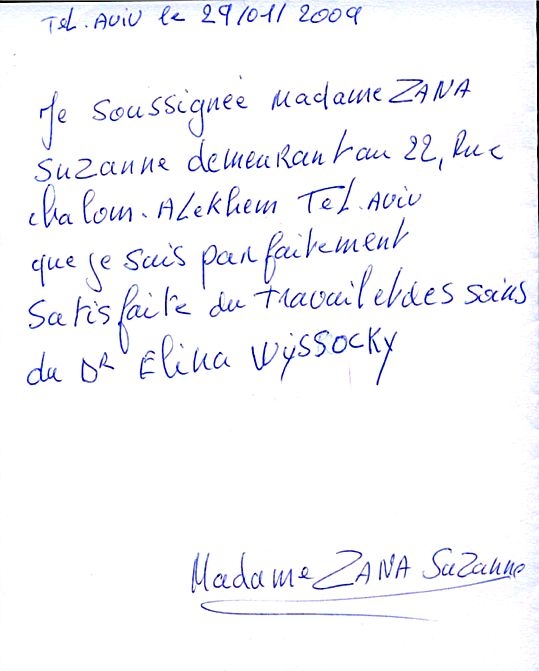 Tel. Aviv le 29/01/2009
Je soussignée Madame ZANA
SUZANNE demeurant au 22, Rue
chalom. ALEKhem TEL. AVIV
que je suis parfaitement
Satisfaite du travail et des soins
du DR Elina WYSSOCKY
Madame ZANA SuZanne